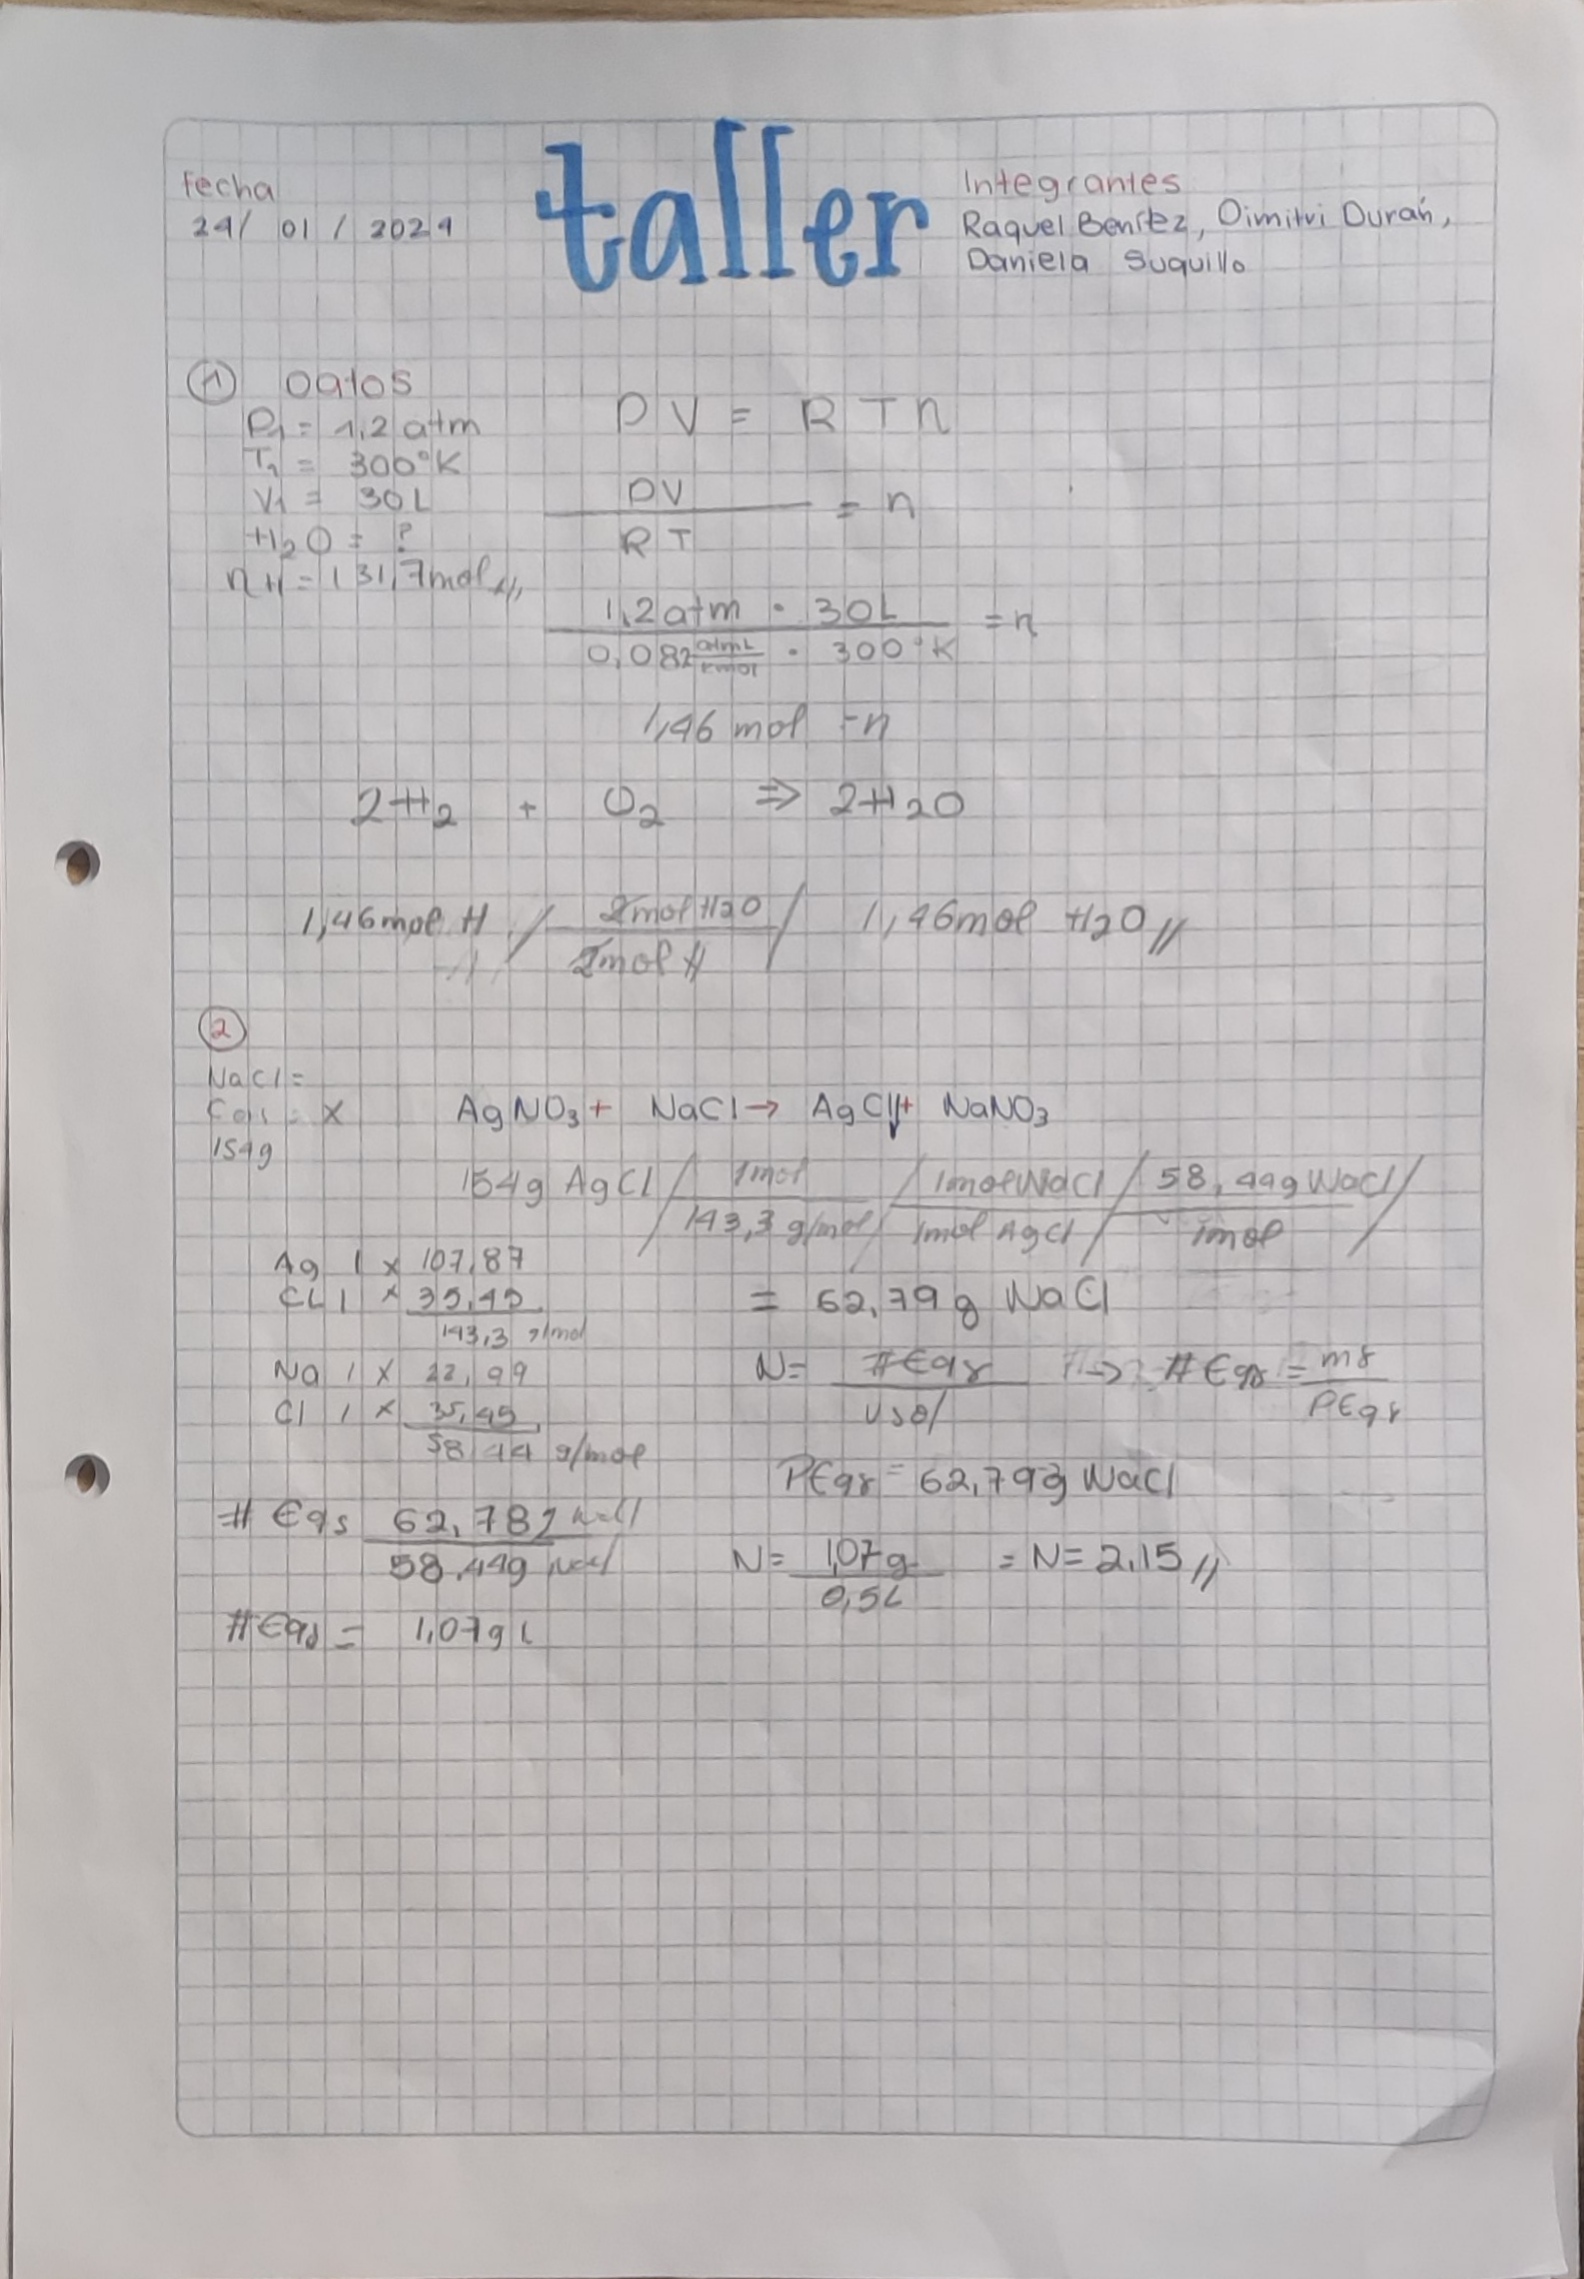 fecha
24/ 01 / 2024
taller
Integrantes
Raquel Benítez, Dimitri Durán,
Daniela Suquillo
1 Datos
P1 = 1,2 atm
T1 = 300°K
V1 = 30L
H2O = ?
nH = 131,7mol //
PV = RTn
PV / RT = n
1,2 atm · 30L / 0,082 atmL/Kmol · 300°K = n
1,46 mol = n
2H2 + O2 ⇒ 2H2O
1,46mol H / 2mol H2O / 2mol H / 1,46mol H2O //
2
NaCl =
= X
154g
AgNO3 + NaCl → AgCl↓ + NaNO3
154g AgCl / 1mol / 143,3 g/mol / 1mol NaCl / 1mol AgCl / 58,44g NaCl / 1mol /
Ag 1 x 107,87
CL 1 x 35,45
143,3 g/mol
Na 1 x 22,99
Cl 1 x 35,45
58,44 g/mol
= 62,79 g NaCl
N = #Eqg / Vsol → #Eqg = mg / PEqg
PEqg = 62,79g NaCl
#Eqs 62,78g NaCl / 58,44g NaCl
#Eqs = 1,07g L
N = 1,07g / 0,5L = N = 2,15 //